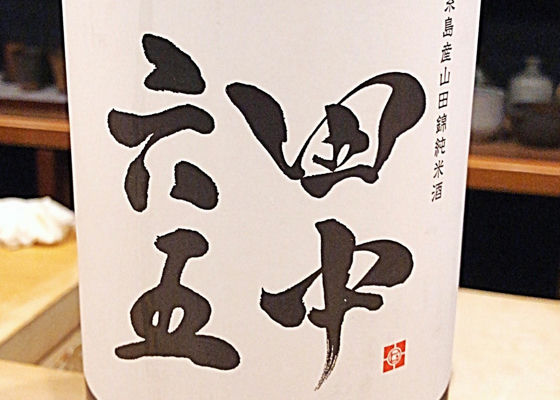 糸島産山田錦純米酒
田中
六五